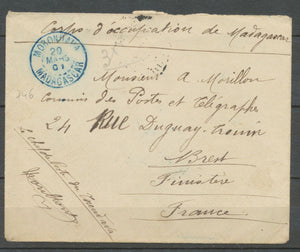 Corps d'occupation de Madagascar
MORONDAVA
20
MARS
01
MADAGASCAR
Monsieur A Morillon
Commis des Postes et Télégraphes
24 Rue Duguay-Trouin
Brest
Finistère
France